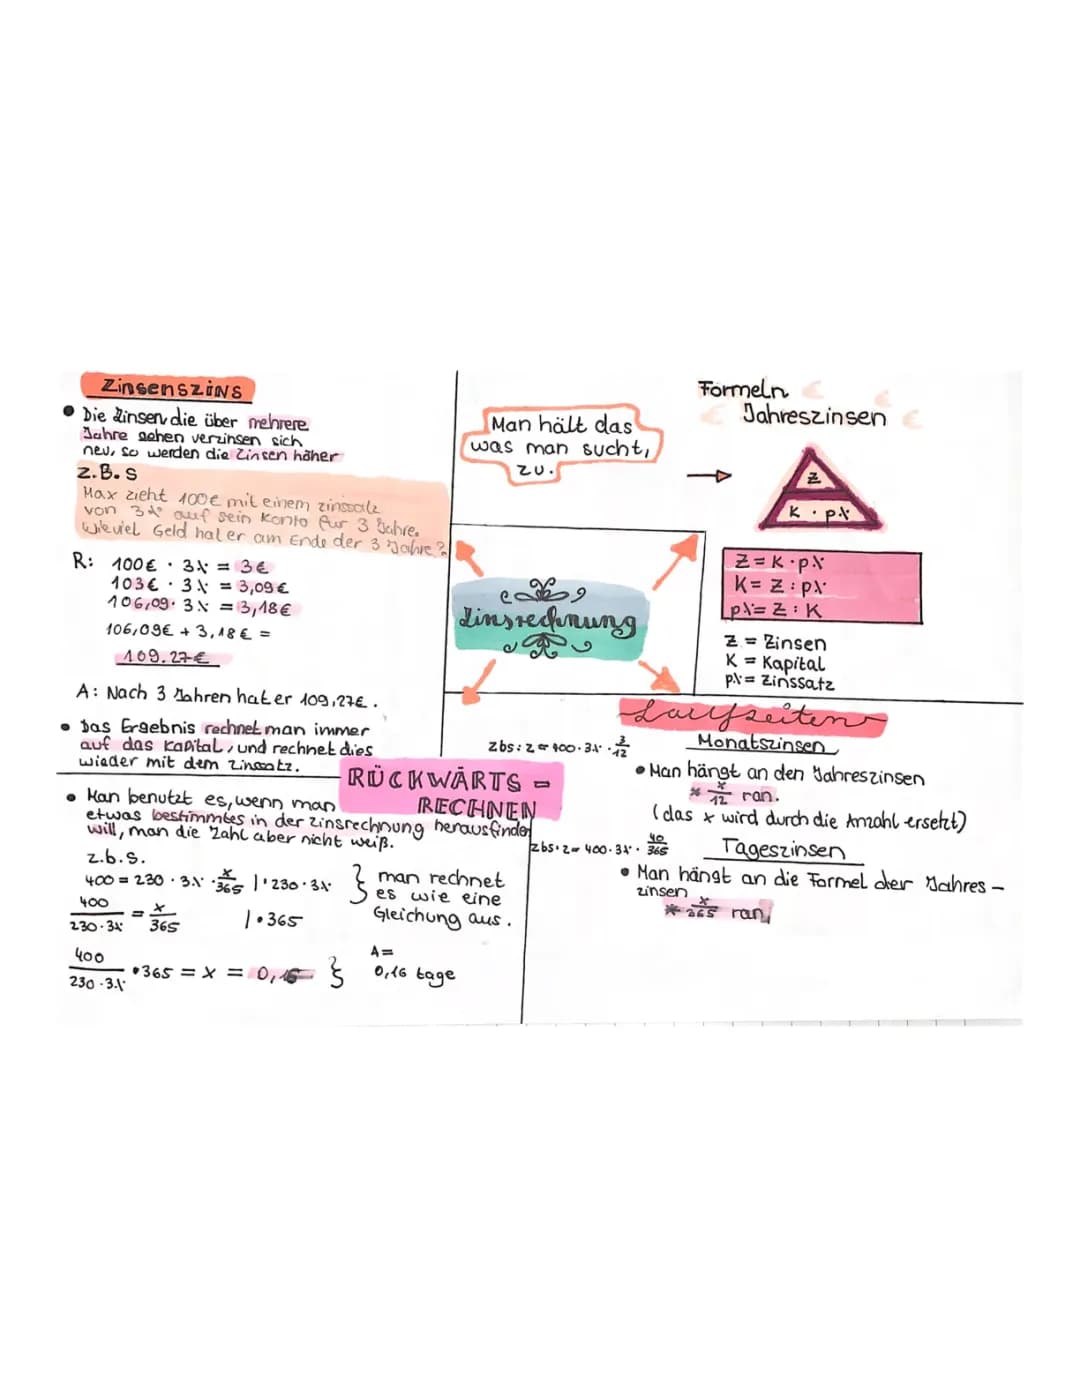 Zinsenszins
• Die Zinsen die über mehrere
Jahre gehen verzinsen sich
neu, so werden die Zinsen höher
z.B.s
Max zieht 100€ mit einem zinssatz
von 3% auf sein Konto für 3 Jahre.
Wieviel Geld hat er am Ende der 3 Jahre?
R: 100€ · 3% = 3€
103€ · 3% = 3,09€
106,09 · 3% = 3,18€
106,09€ + 3,18€ =
109.27€
A: Nach 3 Jahren hat er 109,27€.
• Das Ergebnis rechnet man immer
auf das Kapital, und rechnet dies
wieder mit dem Zinssatz.
Man hält das
was man sucht,
zu.
Formeln €
€ Jahreszinsen €
→
Z
K · p%
Z = K · p%
K = Z : p%
p% = Z : K
Z = Zinsen
K = Kapital
p% = Zinssatz
Zinsrechnung
RÜCKWÄRTS -
RECHNEN
• Man benutzt es, wenn man
etwas bestimmtes in der Zinsrechnung herausfinden
will, man die Zahl aber nicht weiß.
z.b.s.
400 = 230 · 3% · x/365 | · 230 · 3%
400/230·3% = x/365 | · 365
400/230·3% · 365 = x = 0,16
} man rechnet
es wie eine
Gleichung aus.
A =
0,16 tage
Laufzeiten
Monatszinsen
zbs: z = 400 · 3% · 3/12
• Man hängt an den Jahreszinsen
* x/12 ran.
(das x wird durch die Anzahl ersetzt)
Tageszinsen
zbs: z = 400 · 3% · 40/365
• Man hängt an die Formel der Jahres-
zinsen
* x/365 ran,